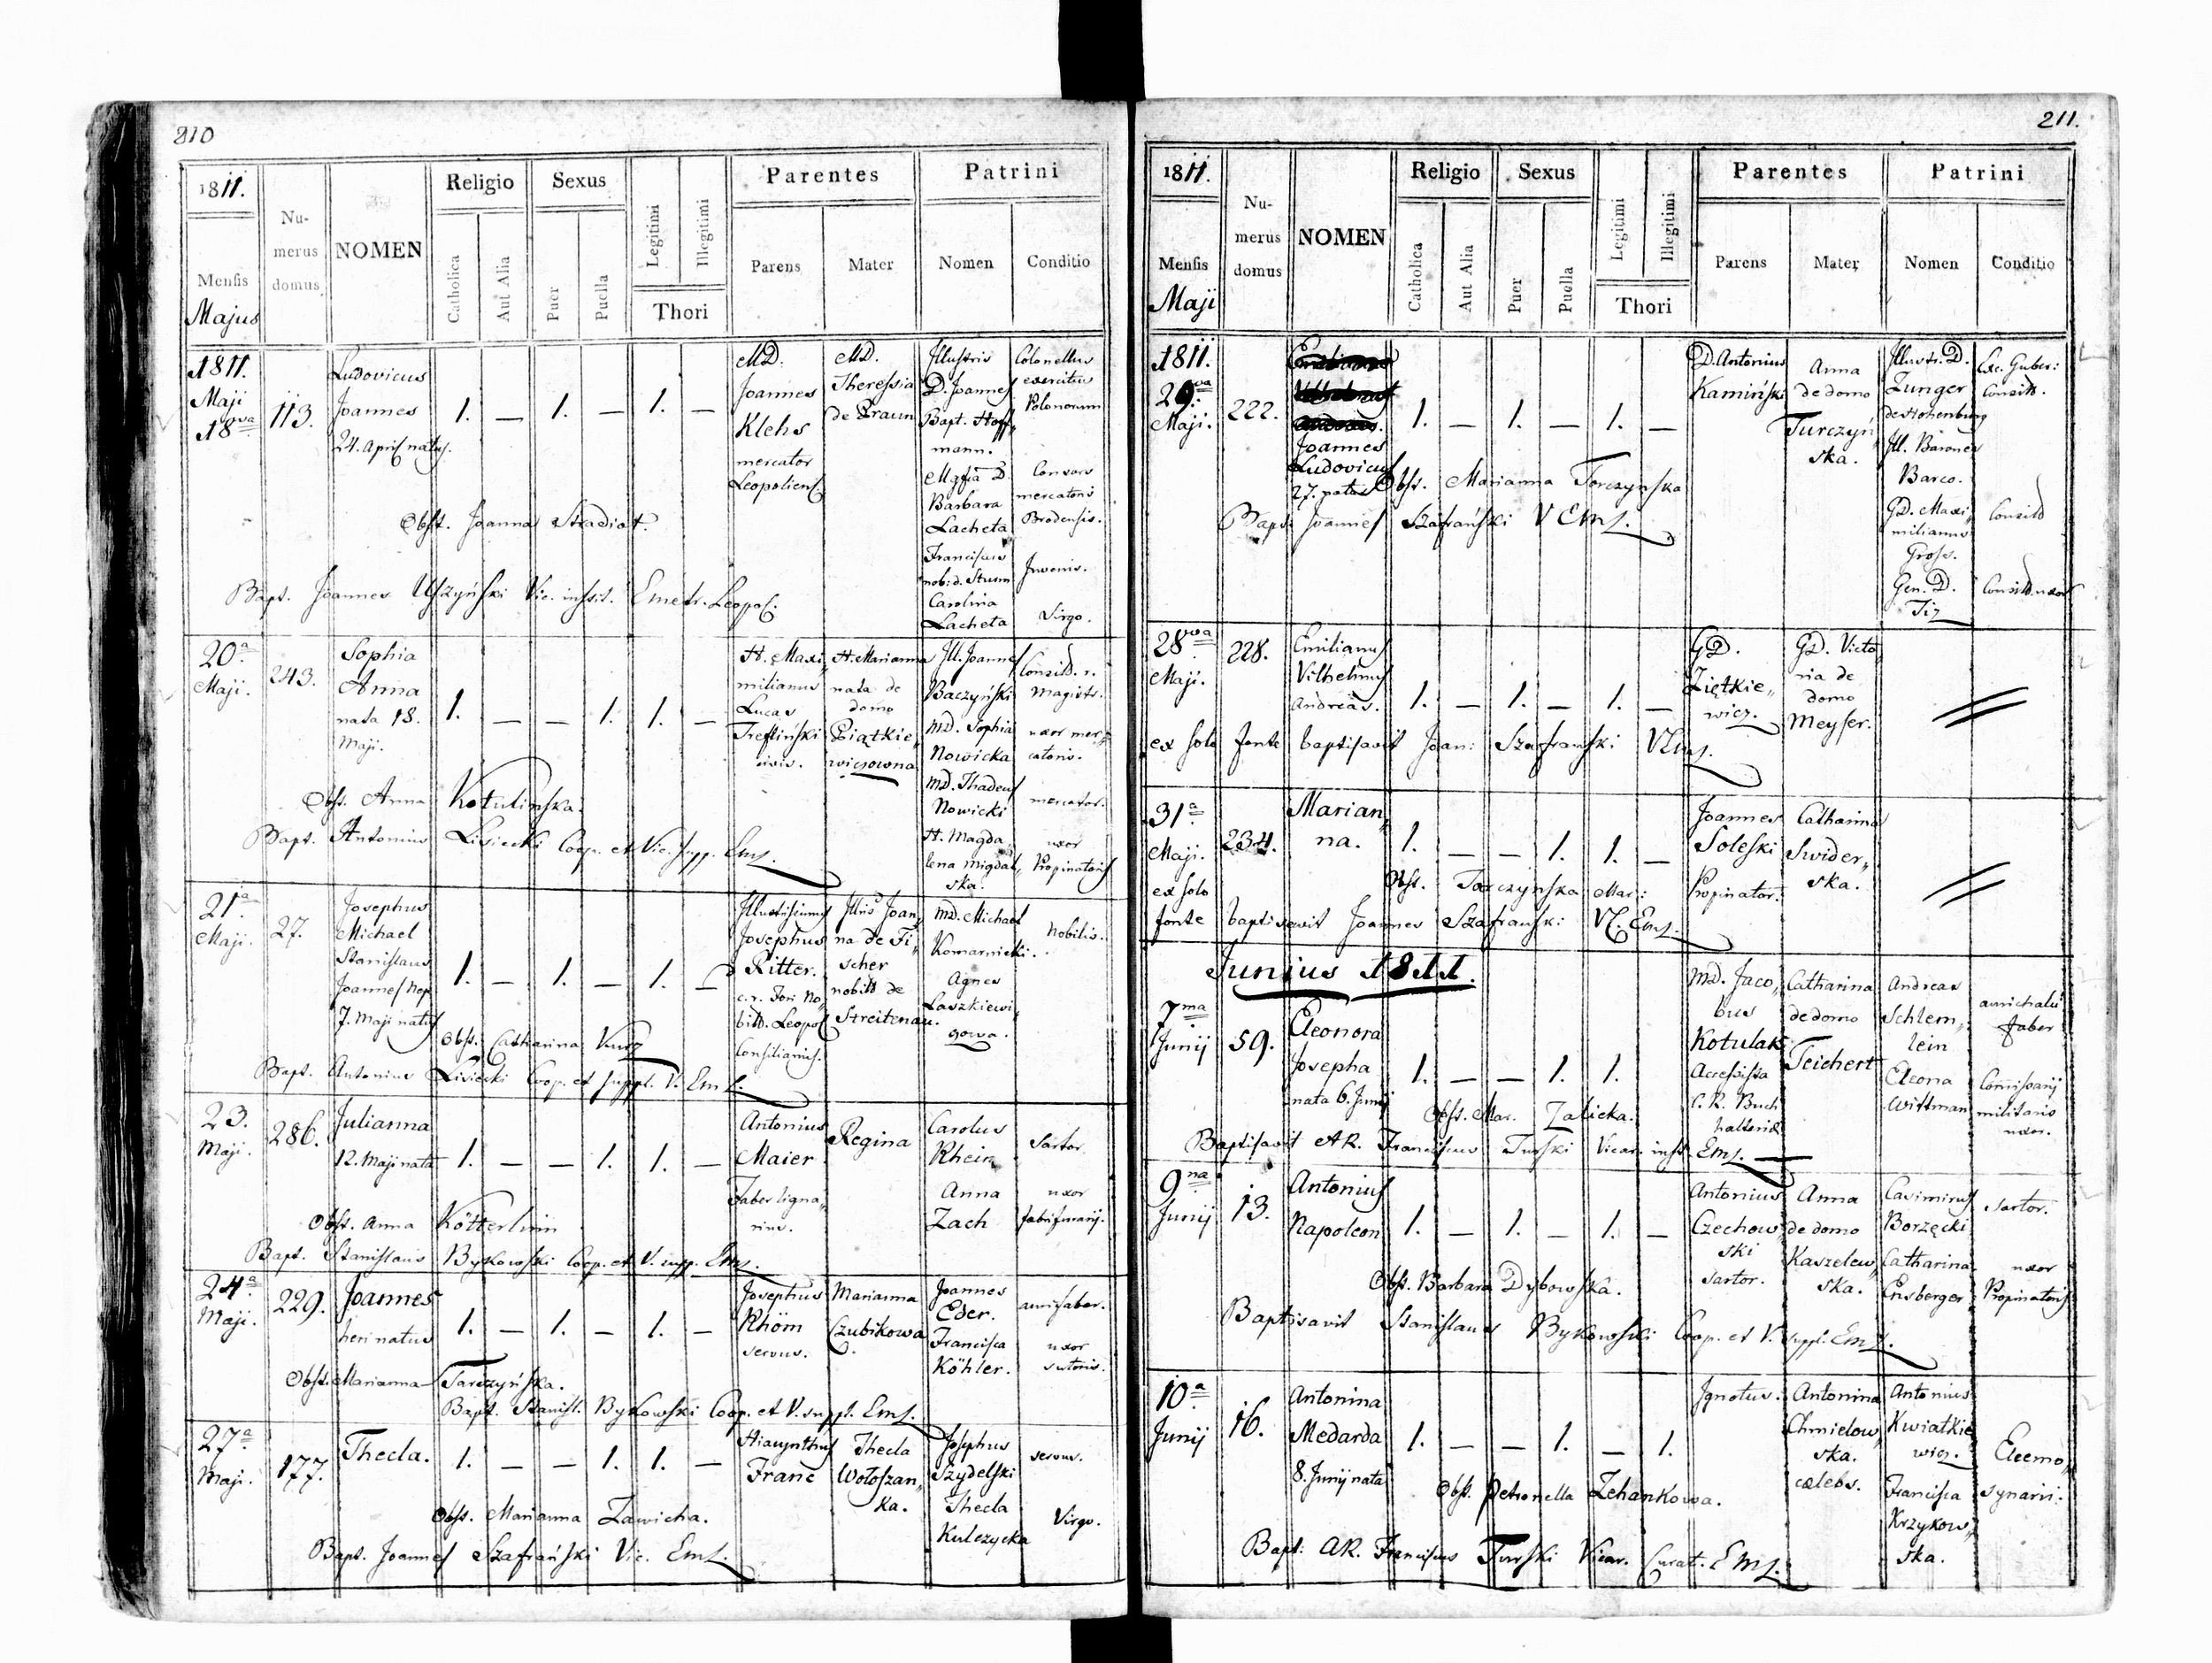 210
1811.
Mensis
Majus
Numerus domus
NOMEN
Religio
Catholica
Aut Alia
Sexus
Puer
Puella
Legitimi
Illegitimi
Thori
Parentes
Parens
Mater
Patrini
Nomen
Conditio
1811.
Maji
18va
113.
Ludovicus
Joannes
24. April natus.
1. — 1. — 1. —
MD.
Joannes
Klehs
mercator
Leopoliens.
MD.
Theressia
de Praun
Illustris
D. Joannes
Bapt. Hoff„
mann.
Barbara
Lacheta
Franciscus
Carolina
Lacheta
Colonellus
exercitus
Polonorum
Consors
mercatoris
Brodensis.
Juvenis.
Virgo.
Obst. Joanna Stradiot.
Bapt. Joannes Uszyński Vic. instit. Emetr. Leopol.
20a
Maji.
243.
Sophia
Anna
nata 18.
Maji.
1. — — 1. 1. —
H. Maxi„
milianus
Lucas
Trefliński
civis.
H. Marianna
nata de
domo
Piątkie„
wiczowna
Ill. Joannes
Baczyński
MD. Sophia
Nowicka
MD. Thadeus
Nowicki
H. Magda
lena Migdal„
ska.
Consil. r.
Magistr.
uxor mer„
catoris.
mercator.
uxor
Propinatoris
Obst. Anna Kotulinska.
Bapt. Antonius Lisiecki Coop. et Vic. supp. Eml.
21a
Maji.
27.
Josephus
Michael
Stanislaus
Joannes Nep.
7. Maji natus
1. — 1. — 1. —
Illustrissimus
Josephus
Ritter.
c. r. Fori No„
bil. Leopol
Consiliarius.
Illus Joan„
na de Fi„
scher
nobilis de
Streitenau.
MD. Michael
Komarnicki.
Agnes
Laszkiewi„
gowa.
Nobilis.
Obst. Catharina Kurz
Bapt. Antonius Lisiecki Coop. et suppl. V. Eml.
23.
Maji.
286.
Julianna
12. Maji nata
1. — — 1. 1. —
Antonius
Maier
Faber ligna„
rius.
Regina
Carolus
Rhein
Anna
Zach
Sartor.
uxor
Obst. Anna Kötterlinin
Bapt. Stanislaus Bykowski Coop. et V. supp. Eml.
24a
Maji.
229.
Joannes
heri natus
1. — 1. — 1. —
Josephus
Rhöm
servus.
Marianna
Czubikowa
Joannes
Eder.
Francisca
Köhler.
aurifaber.
uxor
sutoris.
Obst. Marianna Tarczyńska.
Bapt. Stanisl. Bykowski Coop. et V. suppl. Eml.
27a
Maji.
177.
Thecla.
1. — — 1. 1. —
Hiacynthus
Franc
Thecla
Wołoszan„
ka.
Josephus
Szydelski
Thecla
Kulczycka
servus.
Virgo.
Obst. Marianna Zawicha.
Bapt. Joannes Szafrański Vic. Eml.
211.
1811.
Mensis
Maji
Numerus domus
NOMEN
Religio
Catholica
Aut Alia
Sexus
Puer
Puella
Legitimi
Illegitimi
Thori
Parentes
Parens
Mater
Patrini
Nomen
Conditio
1811.
Maji.
222.
Joannes
Ludovicus
27. natus
1. — 1. — 1. —
D. Antonius
Kamiński
Anna
de domo
Turczyń„
ska.
Illustr. D.
Zunger
de Hohenburg
Ill. Baronea
Barco.
GD. Maxi„
milianus
Gross.
Gen. D.
Tiz
Exc. Guber:
Consil.
Consil
Consil. uxor
Obst. Marianna Torczynska
Bapt. Joannes Szafrański V Eml.
28va
Maji.
228.
Emilianus
Vilhelmus
Andreas.
1. — 1. — 1. —
GD.
Ziętkie„
wicz.
GD. Victo„
ria de
domo
Meyser.
ex solo fonte baptisavit Joan: Szafranski VEml.
31a
Maji.
234.
Marian„
na.
1. — — 1. 1. —
Joannes
Soleski
Propinator.
Catharina
Swider„
ska.
Obst. Torczynska Mar:
ex solo
fonte baptisavit Joannes Szafranski V. Eml.
Junius 1811.
7ma
Junij
59.
Eleonora
Josepha
nata 6. Junij
1. — — 1. 1.
MD. Jaco„
bus
Kotulak
Accessista
C. R. Buch
halterie
Catharina
de domo
Teichert
Andreas
Schlem„
lein
Eleona
Wittman
aurichalci
Faber
Comissarij
militaris
uxor.
Obst. Mar. Zalicka.
Baptisavit AR. Franciscus Turski Vicar. inst. Eml.
9na
Junij
13.
Antonius
Napoleon
1. — 1. — 1. —
Antonius
Czechow
ski
sartor.
Anna
de domo
Kaszelew„
ska.
Casimirus
Borzęcki
Catharina
Ensberger
sartor.
uxor
Propinatoris
Obst. Barbara Dybowska.
Baptisavit Stanislaus Bykowski Coop. et V. suppl. Eml.
10a
Junij
16.
Antonina
Medarda
8. Junij nata
1. — — 1. — 1.
Ignotus.
Antonina
Chmielow„
ska.
cælebs.
Antonius
Kwiatkie
wicz.
Francisca
Krzykow„
ska.
Eleemo„
synarii.
Obst. Petronella Zehankowa.
Bapt: AR. Franciscus Turski Vicar. Curat. Eml.